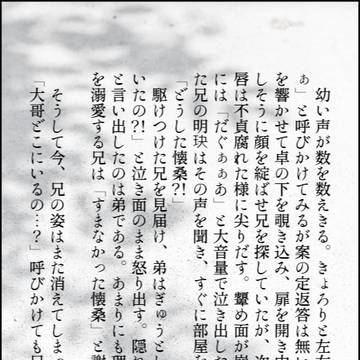 幼い声が数を数えきる。きょろりと左右
ぁ」と呼びかけてみるが案の定返答は無い
を響かせて卓の下を覗き込み、扉を開き中
しそうに顔を綻ばせ兄を探していたが、次
唇は不貞腐れた様に尖りだす。顰め面が崩
には「だぐぁぁあ」と大音量で泣き出した
た兄の明玦はその声を聞き、すぐに部屋な
「どうした懐桑?!」
駆けつけた兄を見届け、弟はぎゅうとし
いたの?!」と泣き面のまま怒り出す。隠れ
と言い出したのは弟である。あまりにも理
を溺愛する兄は「すまなかった懐桑」と謝
そうして今、兄の姿はまた消えてしまっ
「大哥どこにいるの…?」呼びかけても兄